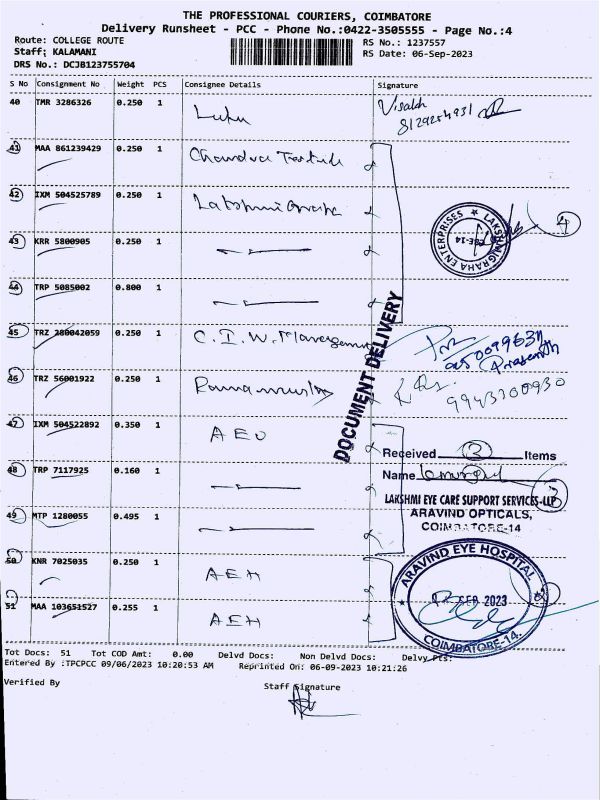 THE PROFESSIONAL COURIERS, COIMBATORE
Delivery Runsheet - PCC - Phone No.:0422-3505555 - Page No.:4
Route: COLLEGE ROUTE
RS No.: 1237557
Staff: KALAMANI
RS Date: 06-Sep-2023
DRS No.: DCJB123755704
S No Consignment No Weight PCS Consignee Details Signature
40 TMR 3286326 0.250 1
Visakh
8129254931
41 MAA 861239429 0.250 1
42 IXM 504525789 0.250 1 Lakshmi Graha
LAKSHMIGRAHA ENTERPRISES
CBE-14
4
43 KRR 5800905 0.250 1
44 TRP 5085002 0.800 1
DOCUMENT DELIVERY
45 TRZ 280042059 0.250 1 C.I.W. Management
Prasanth
46 TRZ 56001922 0.250 1
9943200930
47 IXM 504522892 0.350 1 AEO
Received 3 Items
48 TRP 7117925 0.160 1
Name
3
LAKSHMI EYE CARE SUPPORT SERVICES-LLP
49 MTP 1280055 0.495 1
ARAVIND OPTICALS,
COIMBATORE-14
50 KNR 7025035 0.250 1 AEH
ARAVIND EYE HOSPITAL
SEP 2023
COIMBATORE-14.
51 MAA 103651527 0.255 1 AEH
Tot Docs: 51 Tot COD Amt: 0.00 Delvd Docs: Non Delvd Docs: Delvy Pts:
Entered By :TPCPCC 09/06/2023 10:20:53 AM Reprinted On: 06-09-2023 10:21:26
Verified By
Staff Signature